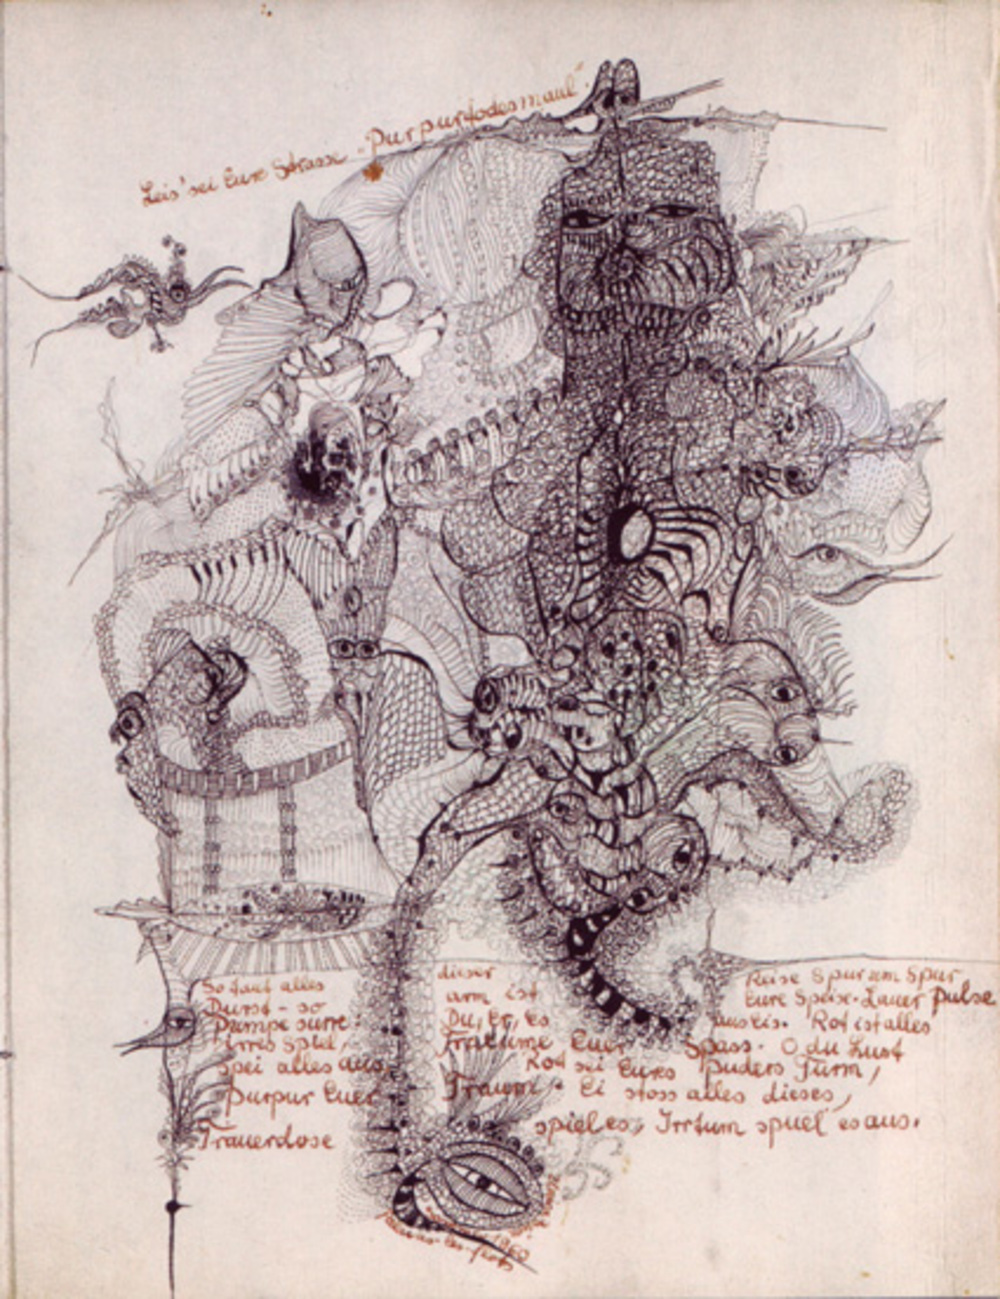 Leis' sei Eure Strasse „Purpurtodesmaul"
So faul alles
Durst - so
pumpe surre
irres Spiel,
spei alles aus
Purpur Euer
Trauerdose
dieser
arm ist
Du, Er, Es
Euer
Rot sei Eures
Traum Ei stoss alles dieses,
spiel es, Irrtum spuel' es aus.
Reise Spur um Spur
Eure Speise. Lauer Pulse
aus Eis. Rot ist alles
Spass. O du Lust
Puders Turm,
1960